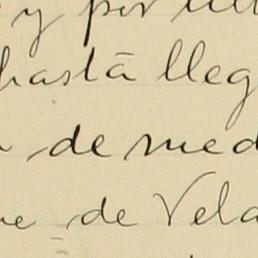 y por
hasta lleg
de med
de Vela